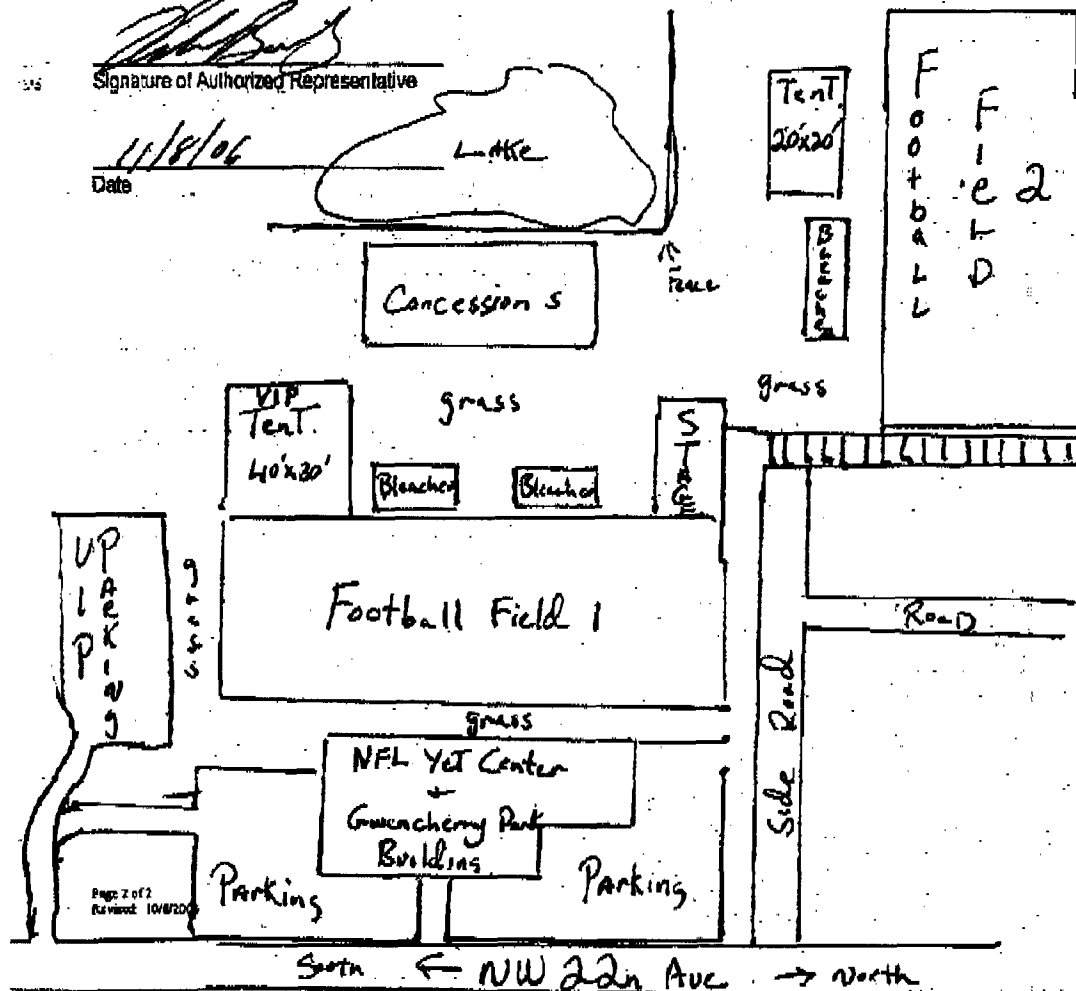 Signature of Authorized Representative
11/8/06
Date
Lake
Fence
TenT
20'x20'
Football
FieLD 2
Concessions
grass
grass
VIP
TenT.
40'x30'
Bleacher
Bleacher
VIP
PArKing
grass
Football Field 1
RoaD
Side Road
grass
NFL YeT Center
+
Gwencherry Park
Building
Parking
Parking
Page 2 of 2
South ← NW 22n Ave → North